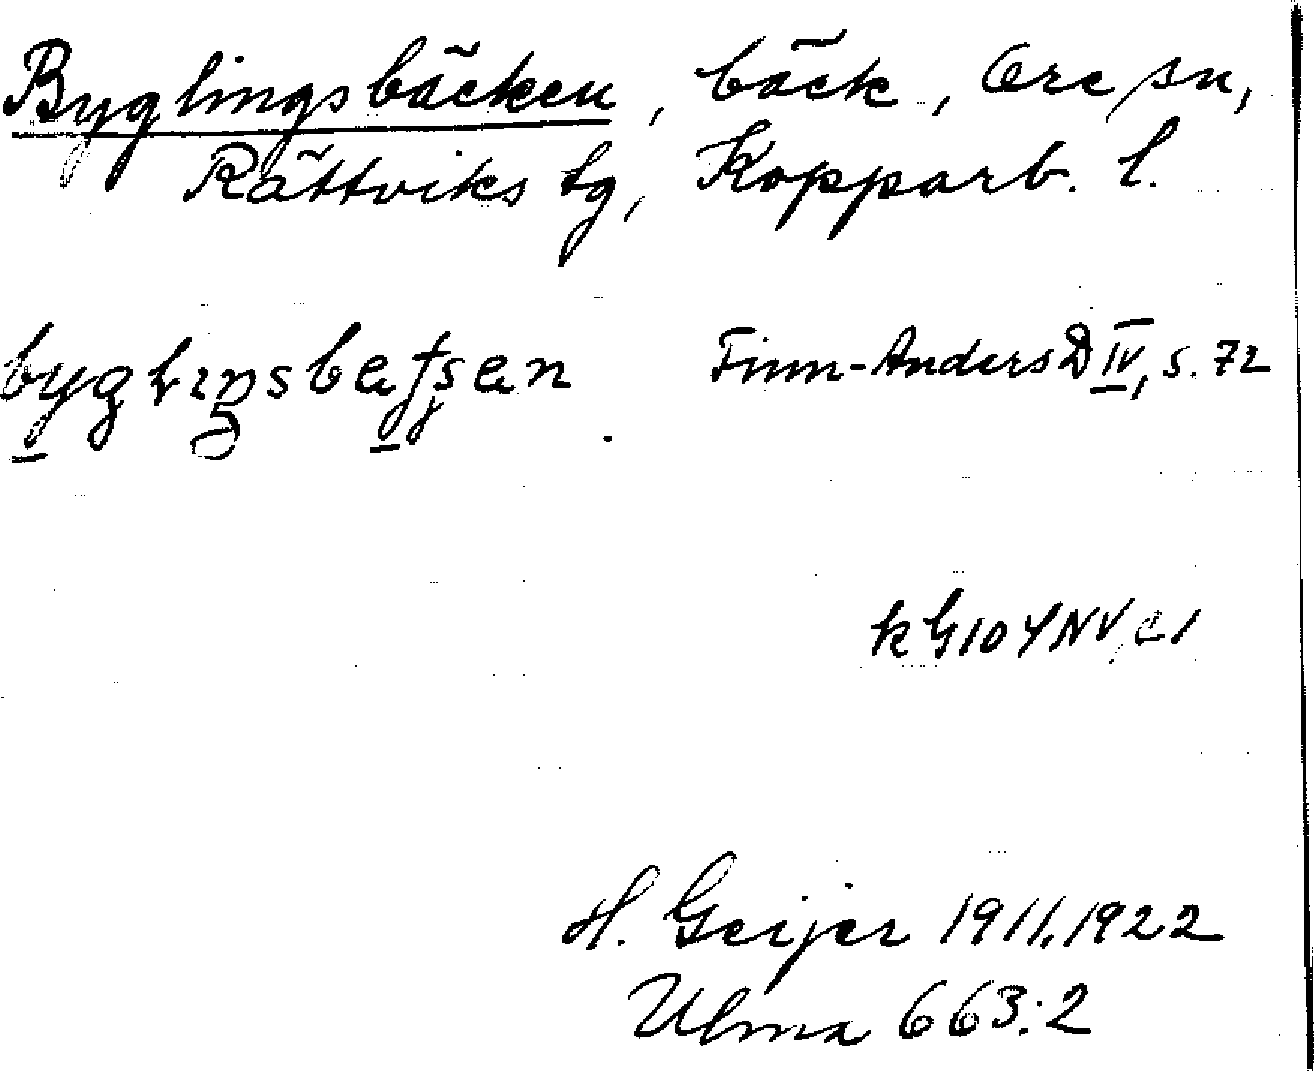 Byglingsbäcken, bäck, Ore sn,
Rättviks tg, Kopparb. l.
Finn-Anders D IV, s. 72
k G10 Y NV,
H. Geijer 1911, 1922
Ulma 663:2